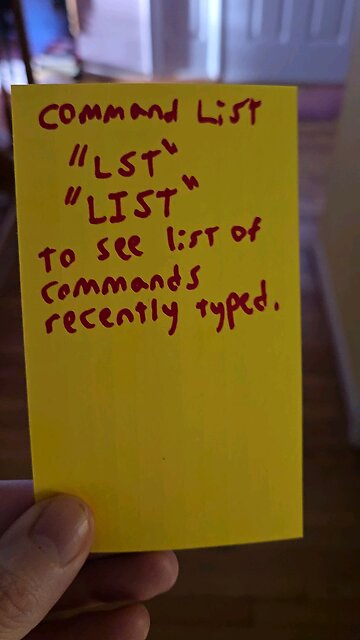 Command List
"LST"
"LIST"
to see list of
commands
recently typed.